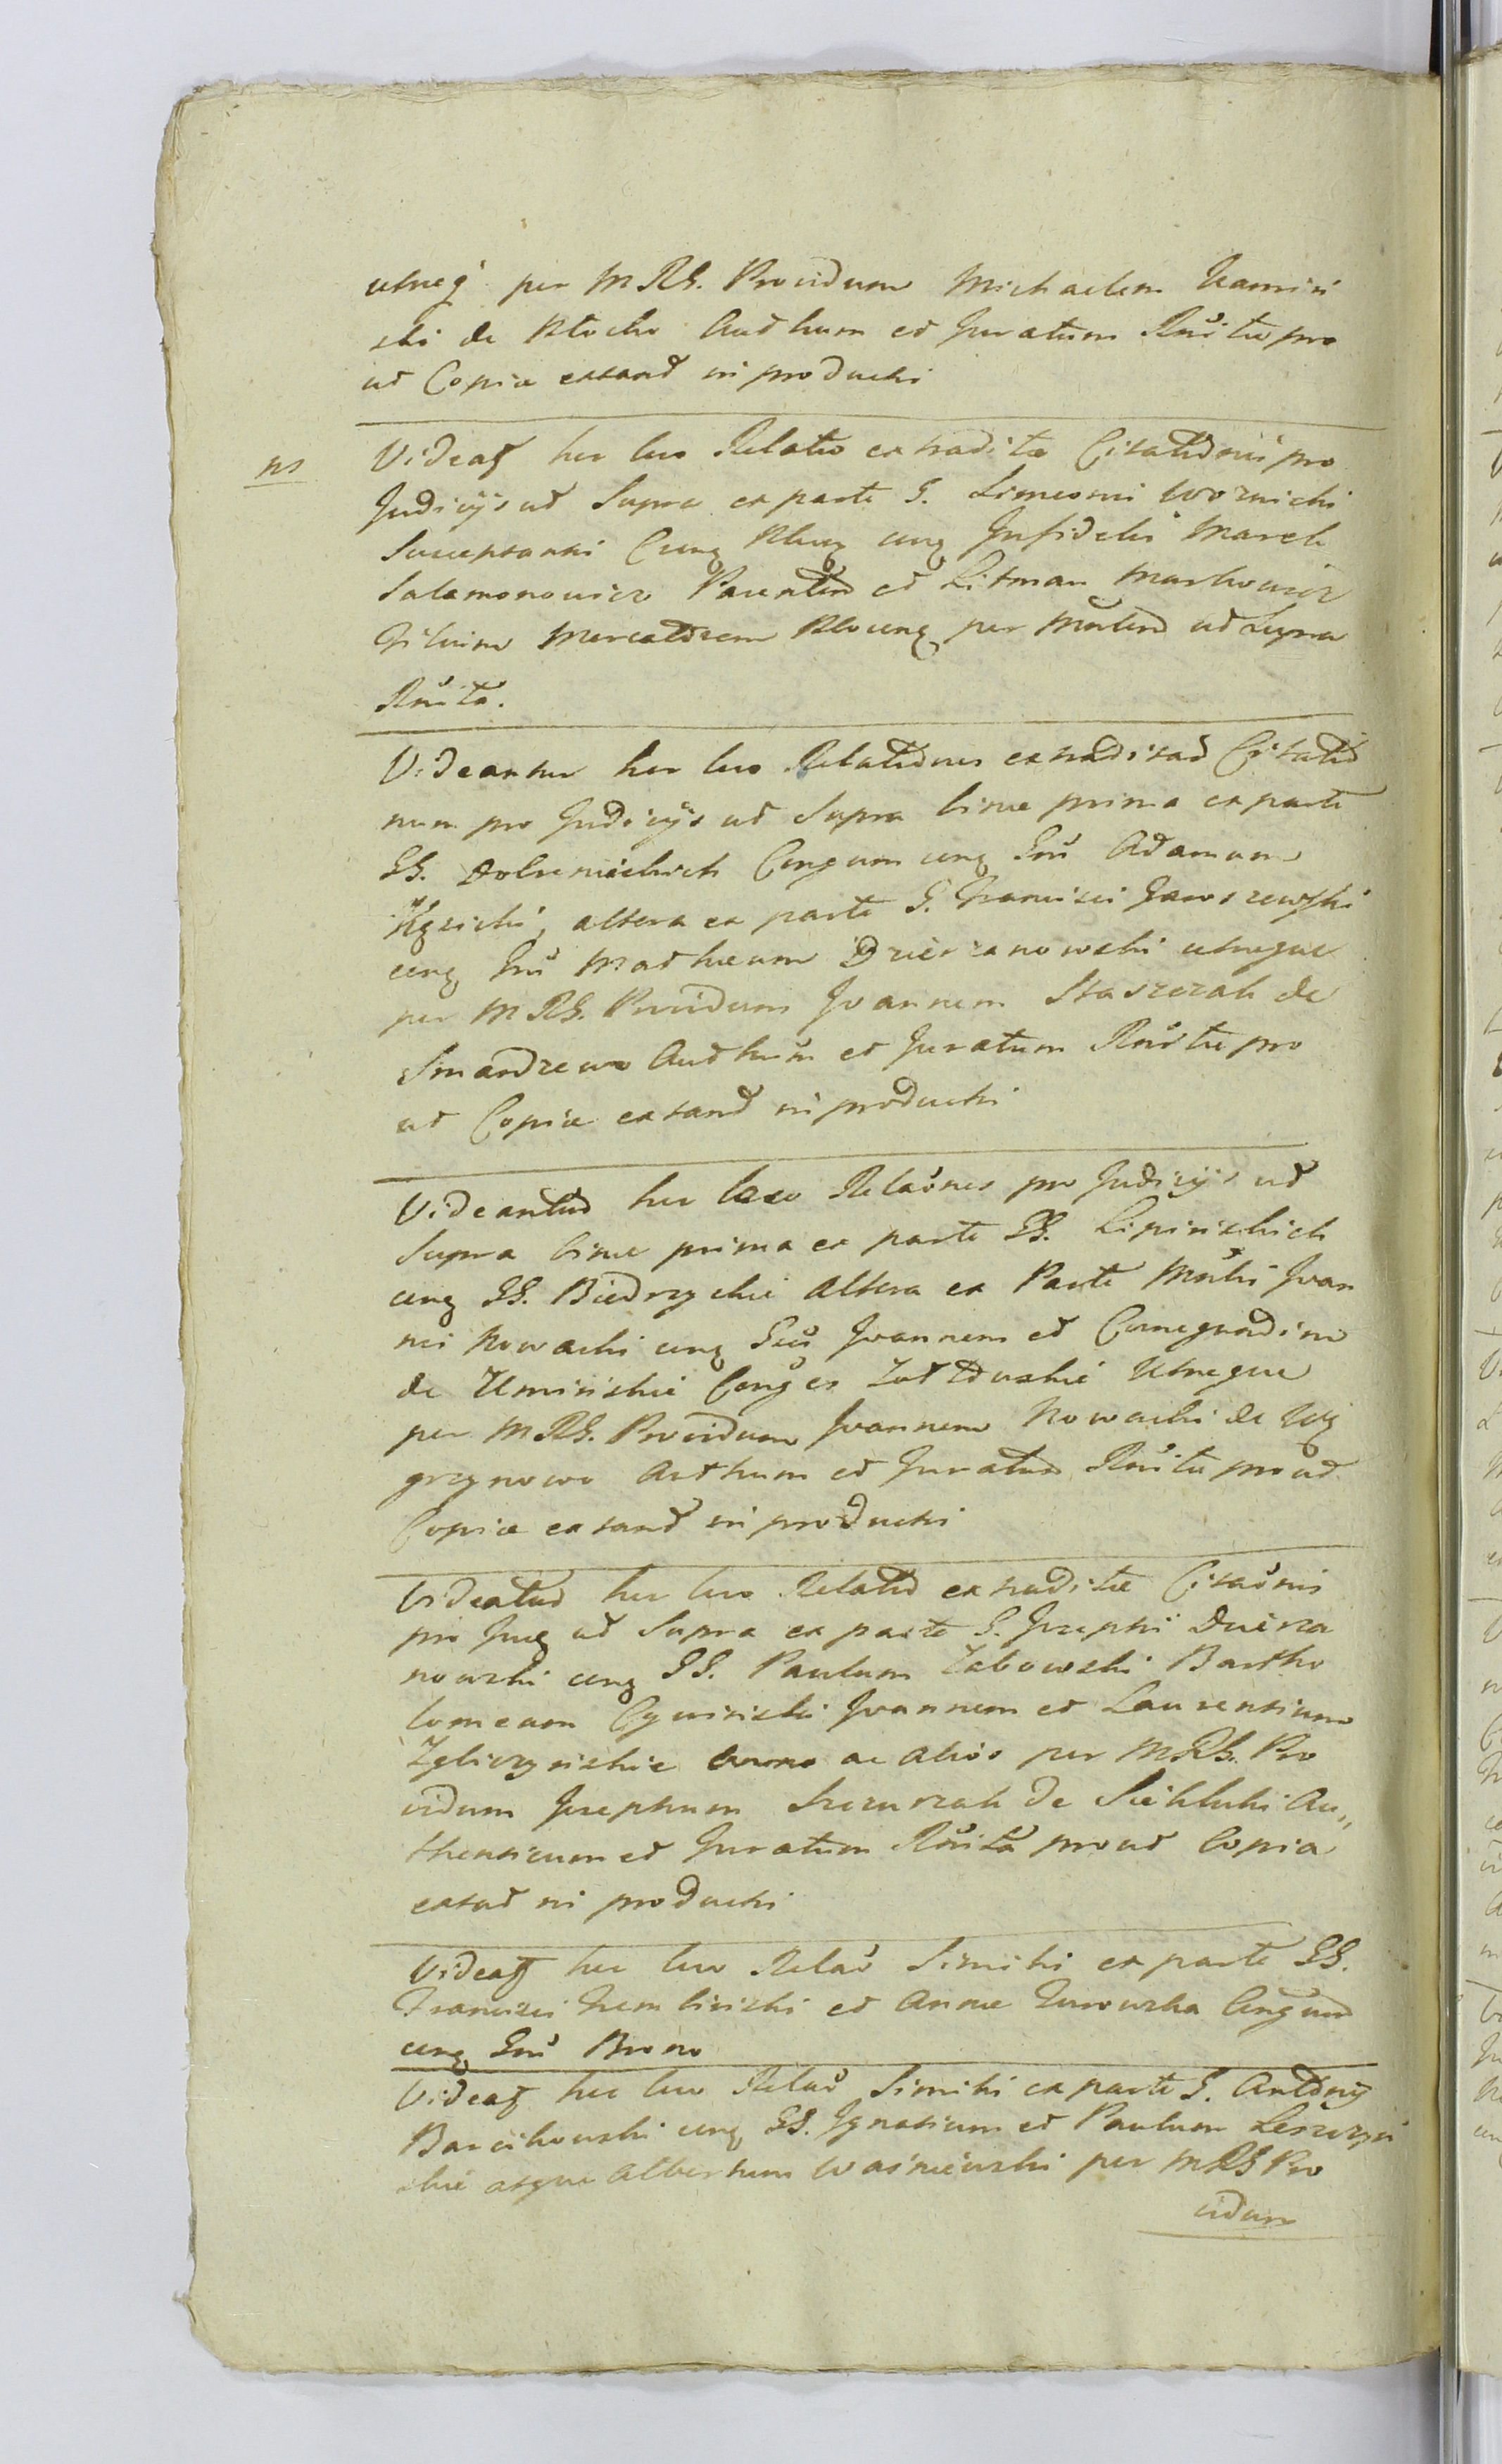 utneq per MRG. Providum Michaelem Kamiń
ski de Płocko Authum et Juratum Rńitæ pro
ut Copiæ extant in producti
ns
Videat hic loco Relatio extraditæ Citationis pro
Judicijs ut Supra ex parte G. Simeonis Woznicki
Susceptantis Cung Ploc cong Infidelis Marek
Salamonowicz Parentem et Litman Markowicz
Filium Mercatorem Plocens per Mńtem ut Supra
Rńita.
Videantur hic loco Relationes extraditar Citatio
num pro Judicijs ut Supra binæ prima ex parte
GG. Dobrnickich Congum cong Gñ Adamum
Kęsicki, altera ex parte G. Francisci Jaroszewski
cong Gñ Mathæum Dzierzanowski utraque
per MRG. Providum Joannem Staszczak de
Smardzewo Authum et Juratum Rńitæ pro
ut Copiæ extant in producti
Videantur hic loco Relaónes pro Judicijs ut
Supra binæ prima ex parte GG. Lipinskich
cong GG. Biedrzyckie Altera ex Parte Mńhi Joan
nis Nowacki cong Gños Joannem et Cunegundim
de Uminskie Conges Żółtowskie Utraque
per MRG. Providum Joannem Nowacki de Wę
grzynowo Authum et Juratum Rńitæ prout
Copiæ extant in producti
Videatur hic loco Relatio extraditæ Citaónis
pro Jug ut Supra ex parte G. Josephi Dzierza
nowski cong GG. Paulum Zabowski Bartho
lomeum Cywinski Joannem et Laurentium
Zgliczynskie ac alios per MRG. Pro
vidum Josephum Szczurzak de Siekluki Au„
thenticum et Juratum Rńita prout Copia
extat in producti
Videat hic loco Relaó Similis ex parte GG.
Francisci Trembinski et Annæ Turowska Congum
cong Gñ Brono
Videat hic loco Relaó Similis ex parte G. Antonij
Barcikowski cong GG. Ignatium et Paulum Leszczyń
skie atque Albertum Waśniewski per MRG Pro
vidum